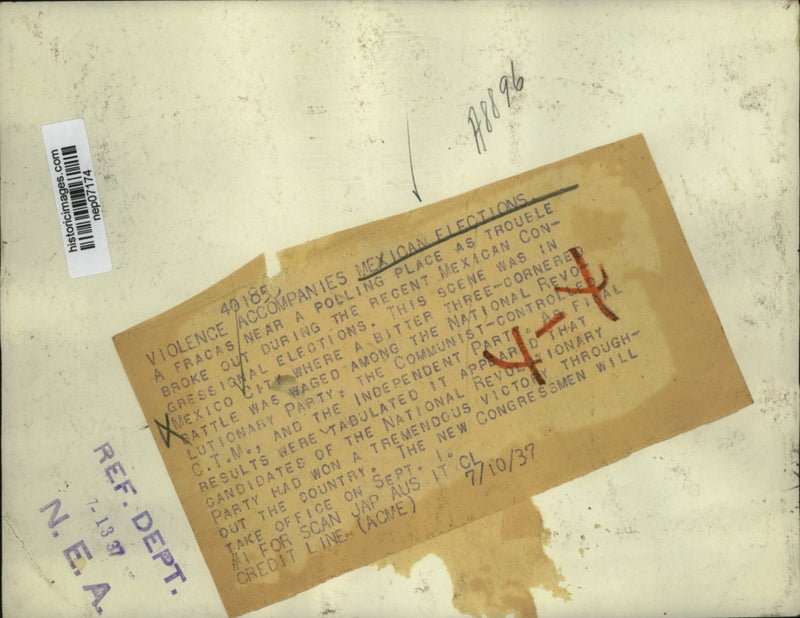 A8896
historicimages.com
nep07174
49185
VIOLENCE ACCOMPANIES MEXICAN ELECTIONS
A FRACAS NEAR A POLLING PLACE AS TROUELE
BROKE OUT DURING THE RECENT MEXICAN CON-
GRESSIONAL ELECTIONS. THIS SCENE WAS IN
MEXICO CITY WHERE A BITTER THREE-CORNERED
BATTLE WAS WAGED AMONG THE NATIONAL REVO-
LUTIONARY PARTY, THE COMMUNIST-CONTROLLED
C.T.M., AND THE INDEPENDENT PARTY. AS FINAL
RESULTS WERE TABULATED IT APPEARED THAT
CANDIDATES OF THE NATIONAL REVOLUTIONARY
PARTY HAD WON A TREMENDOUS VICTORY THROUGH-
OUT THE COUNTRY. THE NEW CONGRESSMEN WILL
TAKE OFFICE ON SEPT. 1.
#1 FOR SCAN JAP AUS IT CL
CREDIT LINE (ACME) 7/10/37
4-4
REF. DEPT.
7-13 37
N. E. A.